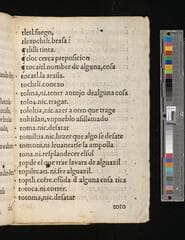 tletl.fuego.
tlexochtli.brasa
¶ tlilli tinta.
¶ tloc cerca preposicion
¶ tocaitl.nombre de alguna.cosa
tocatl.la araña.
tochtli.conejo
tolina,ni.tener antojo dealguna cosa
toloa.nic.tragar.
toltictia,nic.azer a otro que trage
toltitlan, vn pueblo assillamado
toma.nic.desatar
tomiltia nic.hazer que algo se desate
tomtoni.ni leuantarse la ampolla
tona.ni.resplandecer elsol
topile el que trae lavara de alguazil
topilecati.ni ser alguazil.
toptli.cofre.esfida d alguna cosa rica
totoca.ni.correr.
totoma,nic.desatar
toto